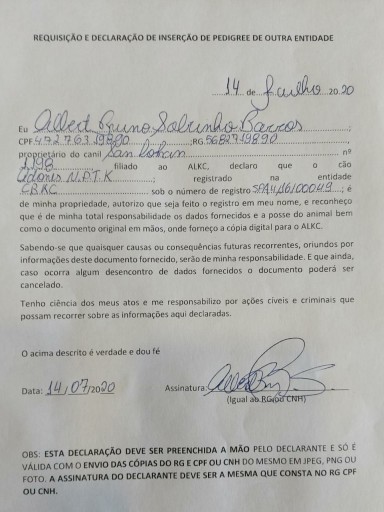 REQUISIÇÃO E DECLARAÇÃO DE INSERÇÃO DE PEDIGREE DE OUTRA ENTIDADE
14 de Julho 20 20
Eu Albert Bruno Sobrinho Barros;
CPF 47276319890;RG 568271989 0
proprietário do canil San Lohan nº
1.198 filiado ao ALKC, declaro que o cão
N.P.T.K; registrado na entidade
CBKC sob o número de registro SPA416/00049; é
de minha propriedade, autorizo que seja feito o registro em meu nome, e reconheço
que é de minha total responsabilidade os dados fornecidos e a posse do animal bem
como o documento original em mãos, onde forneço a cópia digital para o ALKC.
Sabendo-se que quaisquer causas ou consequências futuras recorrentes, oriundos por
informações deste documento fornecido, serão de minha responsabilidade. E que ainda,
caso ocorra algum desencontro de dados fornecidos o documento poderá ser
cancelado.
Tenho ciência dos meus atos e me responsabilizo por ações cíveis e criminais que
possam recorrer sobre as informações aqui declaradas.
O acima descrito é verdade e dou fé
Data: 14/07/2020 Assinatura:
(Igual ao RG ou CNH)
OBS: ESTA DECLARAÇÃO DEVE SER PREENCHIDA A MÃO PELO DECLARANTE E SÓ É
VÁLIDA COM O ENVIO DAS CÓPIAS DO RG E CPF OU CNH DO MESMO EM JPEG, PNG OU
FOTO. A ASSINATURA DO DECLARANTE DEVE SER A MESMA QUE CONSTA NO RG CPF
OU CNH.